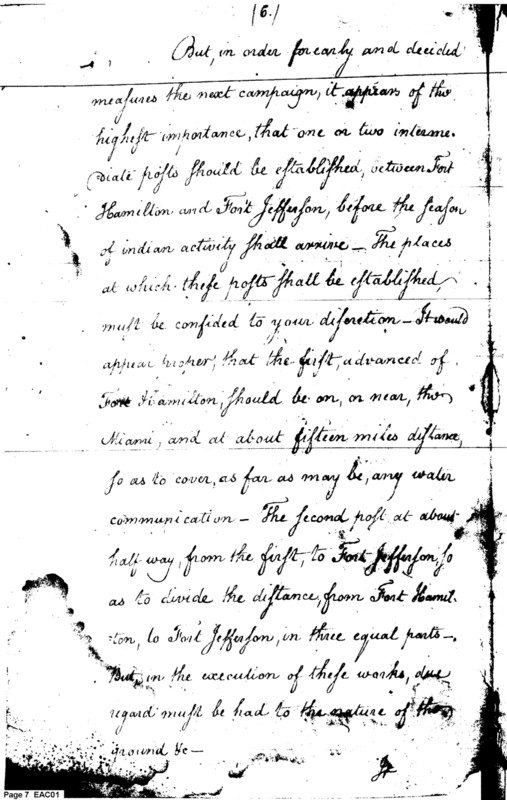 (6.)
But, in order for early and decided
meaſures the next campaign, it appears of the
higheſt importance, that one or two interme-
diate poſts ſhould be eſtabliſhed, between Fort
Hamilton and Fort Jefferſon, before the ſeaſon
of indian activity ſhall arrive — The places
at which theſe poſts ſhall be eſtabliſhed,
muſt be confided to your diſcretion — It would
appear proper, that the firſt, advanced of
Fort Hamilton, ſhould be on, or near, the
Miami, and at about fifteen miles diſtance,
ſo as to cover, as far as may be, any water
communication — The ſecond poſt at about
half way, from the firſt, to Fort Jefferſon, ſo
as to divide the diſtance, from Fort Hamil-
-ton, to Fort Jefferſon, in three equal parts —
But, in the execution of theſe works, due
regard muſt be had to the nature of the
ground &c —
It
Page 7 EAC01